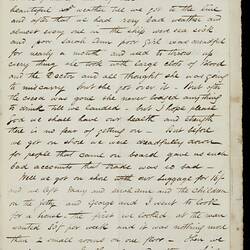 beautiful weather till we got to the line
and after that we had very bad weather and
almost every one in the ship was sea sick
and poor Sarah Ann poor girl was dreadful
for nearly a month and used to throw up
every thing she took with large clots of blood
and the Doctor and all thought she was going
to miscarry but she got over it but after
the sea was gone she never looked anything
till we landed. But I hope please
God we shall have our health and strength
there is no fear of getting on — But before
we got on shore we were dreadfully down
for people that came on board gave us such
bad accounts that trade was so bad —
Well we got on shore with our luggage for 16/-
and we left Mary and Sarah Ann and the children
on the jetty and George and I went to look
for a house. the first we looked at the man
wanted 35/- per week and it was nothing more
than 2 small rooms on one floor — then we